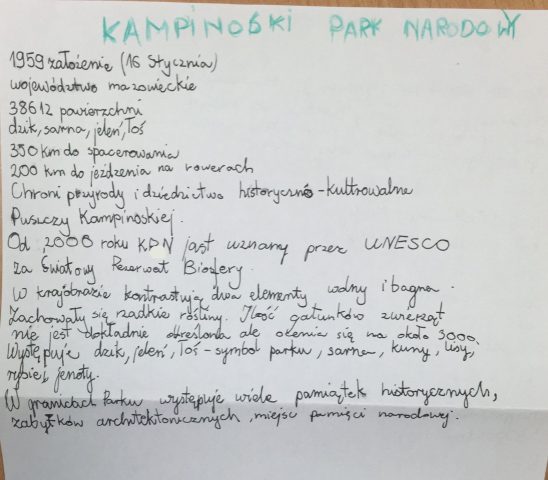 KAMPINOSKI PARK NARODOWY
1959 założenie (16 Stycznia)
województwo mazowieckie
38612 powierzchni
dzik, sarna, jeleń, łoś
350 km do spacerowania
200 km do jeżdżenia na rowerach
Chroni przyrody i dziedzictwo historyczno-kultrowalne
Puszczy Kampinoskiej.
Od 2000 roku KPN jast uznany przez UNESCO
za Światowy Rezerwat Biosfery.
W krajobrazie kontrastują dwa elementy wydmy i bagna.
Zachowały się rzadkie rośliny. Ilość gatunków zwierząt
nie jest dokładnie określona ale ocenia się na około 3000.
Występuje dzik, jeleń, łoś - symbol parku, sarna, kuny, lisy,
rysie, jenoty.
W granicach Parku występuje wiele pamiątek historycznych,
zabytków architektonicznych, miejsc pamięci narodowej.